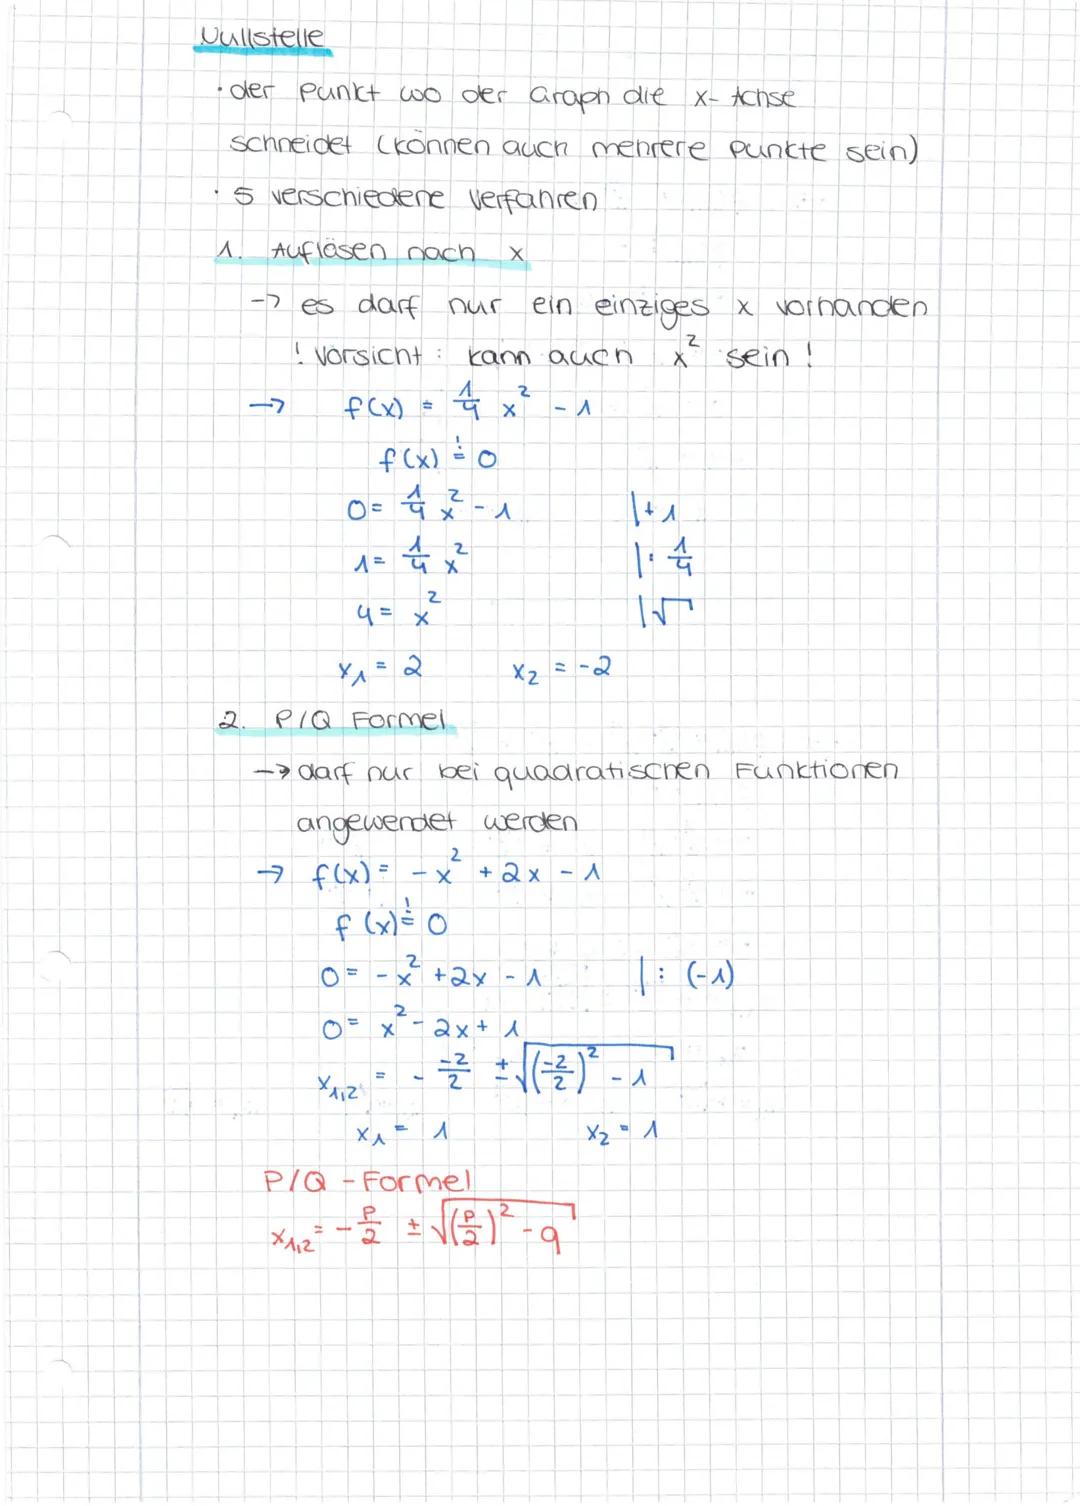 Nullstelle
· der Punkt wo der Graph die x-Achse
schneidet (können auch mehrere Punkte sein)
· 5 verschiedene Verfahren
1. Auflösen nach x
-> es darf nur ein einziges x vorhanden
! Vorsicht: kann auch x² sein!
→ f(x) = 1/4 x² - 1
f(x) =! 0
0 = 1/4 x² - 1 |+1
1 = 1/4 x² |: 1/4
4 = x² |√
x₁ = 2 x₂ = -2
2. P/Q Formel
→ darf nur bei quadratischen Funktionen
angewendet werden
→ f(x) = -x² + 2x - 1
f(x) =! 0
0 = -x² + 2x - 1 |: (-1)
0 = x² - 2x + 1
x₁,₂ = - -2/2 ± √((-2/2)² - 1)
x₁ = 1 x₂ = 1
P/Q - Formel
x₁,₂ = - P/2 ± √((P/2)² - q)